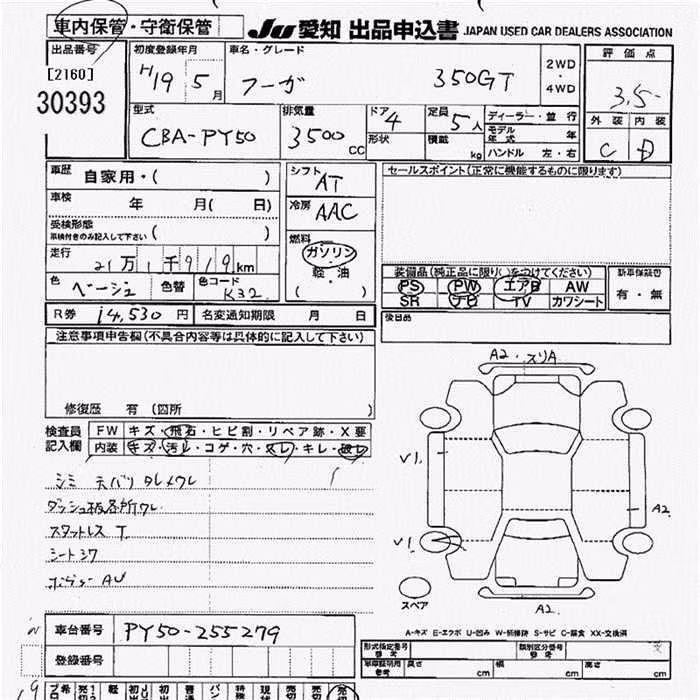 車内保管・守衛保管
JU 愛知 出品申込書 JAPAN USED CAR DEALERS ASSOCIATION
出品番号
[2160]
30393
初度登録年月
H19 5月
車名・グレード
フーガ 350GT
2WD
・
4WD
評価点
3.5
外装 内装
C D
型式
CBA-PY50
排気量
3500cc
ドア 4
形状
定員 5人
積載 kg
ディーラー・並行
モデル年式 年
ハンドル 左・右
車歴 自家用・( )
車検 年 月( 日)
受検形態
車検付きのみ記入して下さい ( )
走行 21万1千919km
色 ベージュ 色替 色コード K32
シフト AT
冷房 AAC
燃料
ガソリン
軽・油
( )
セールスポイント(正常に機能するものに限ります)
装備品(純正品に限り○をつけてください)
PS PW エアB AW
SR ナビ TV カワシート
新車保証書
有・無
後日品
R券 14,530円 名変通知期限 月 日
注意事項申告欄(不具合内容等は具体的に記入して下さい)
修復歴 有(箇所 )
検査員記入欄
FW キズ・飛石・ヒビ割・リペア跡・X要
内装 キズ・汚レ・コゲ・穴・スレ・キレ・破レ
シミ 天バリ タレ メクレ
ダッシュ板各所ワレ
スタットレスT
シートシワ
ボデーAU
A2・スリA
V1.
V1.
A2
A2.
スペア
A-キズ E-エクボ U-凹み W-補修跡 S-サビ C-腐食 XX-交換済
車台番号 PY50-255279
登録番号
型式指定番号
参考
類別区分番号
参考
車庫証明用
参考
長さ cm 幅 cm 高さ cm